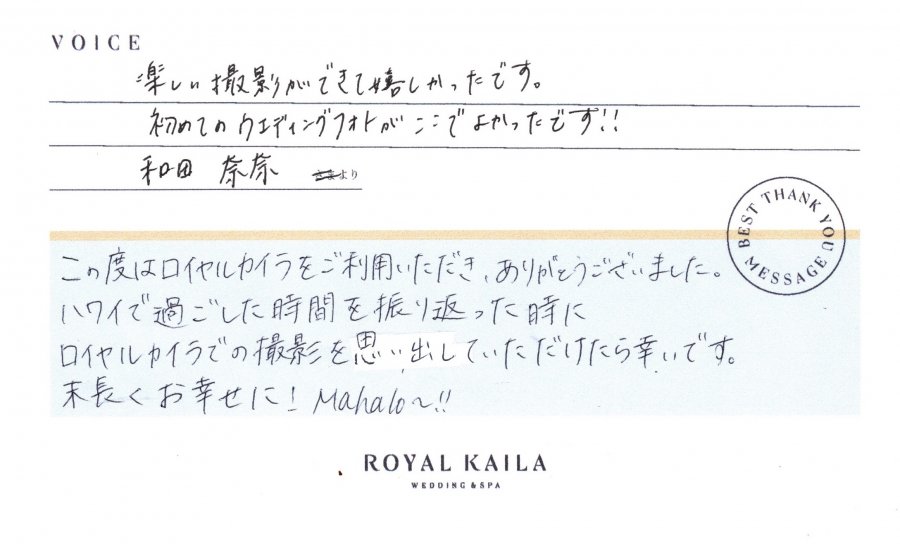 VOICE
楽しい撮影ができて嬉しかったです。
初めてのウエディングフォトがここでよかったです!!
和田 奈奈 さまより
BEST THANK YOU MESSAGE
この度はロイヤルカイラをご利用いただき、ありがとうございました。
ハワイで過ごした時間を振り返った時に
ロイヤルカイラでの撮影を思い出していただけたら幸いです。
末長くお幸せに! Mahalo~!!
ROYAL KAILA
WEDDING & SPA